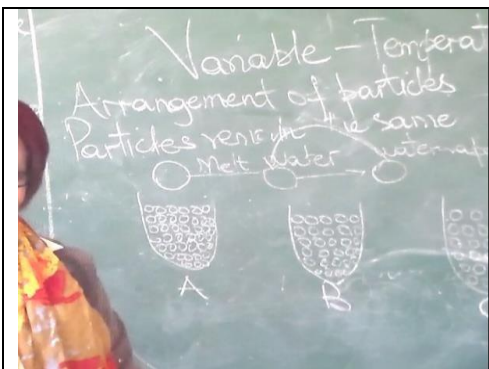 Variable - Temperat
Arrangement of particles
Particles remain the same
Melt Water
A B